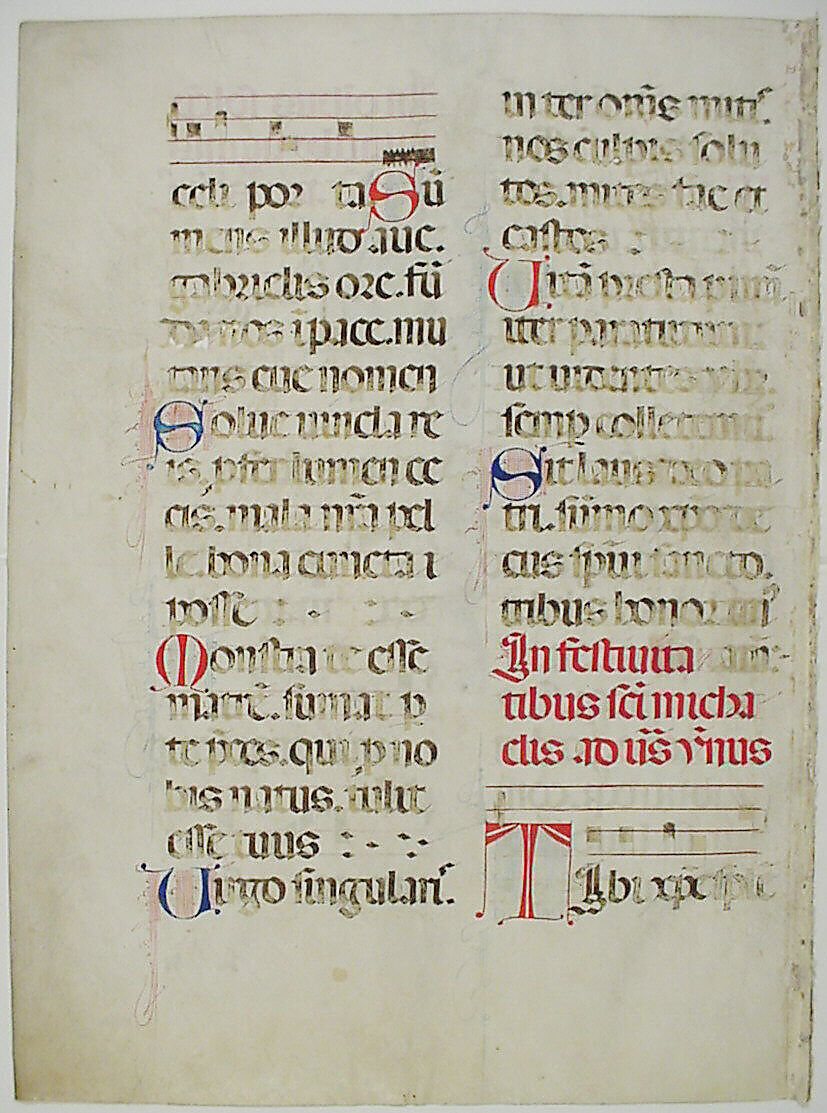 celi por ta Sū
mens illud aue.
gabrielis ore. fū
da nos ī pace. mu
tans eue nomen
Solue uincla re
is, pfer lumen ce
cis. mala nr̄a pel
le bona cuncta i
posse
Monstra te esse
matrē. sumat p
te p̄ces. qui p no
bis natus. tulit
esse tuus
Uirgo singularis.
inter om̄s mitis.
nos culpis solu
tos. mites fac et
castos
Uitā presta purā.
iter para tutum.
ut uidentes yh̄m.
semp colletemur.
Sit laus deo pa
tri. sūmo xp̄o de
cus sp̄ui sancto.
tribus honor unus
In festiuita amē:
tibus sc̄i micha
elis ad us̄ ymnus
Tibi xp̄e sple